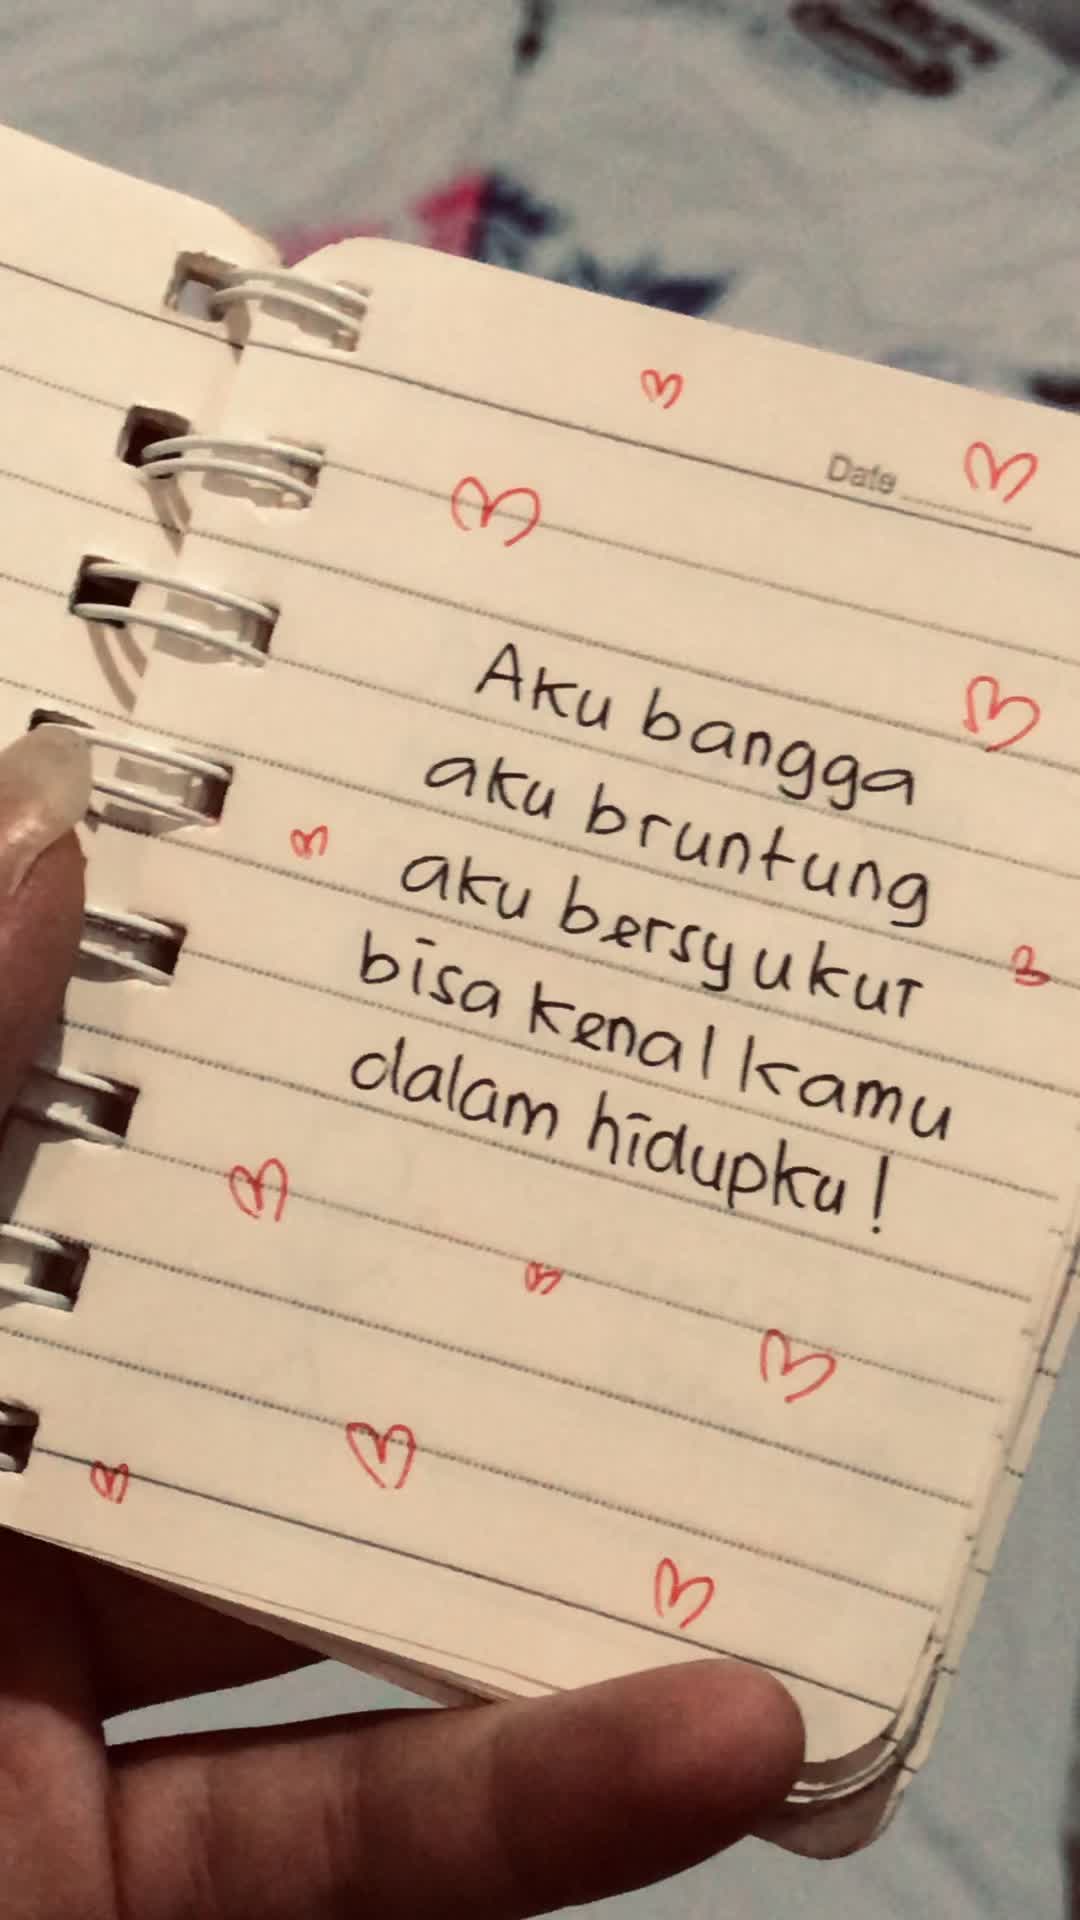 Date
Aku bangga
aku bruntung
aku bersyukur
bisa kenal kamu
dalam hidupku!